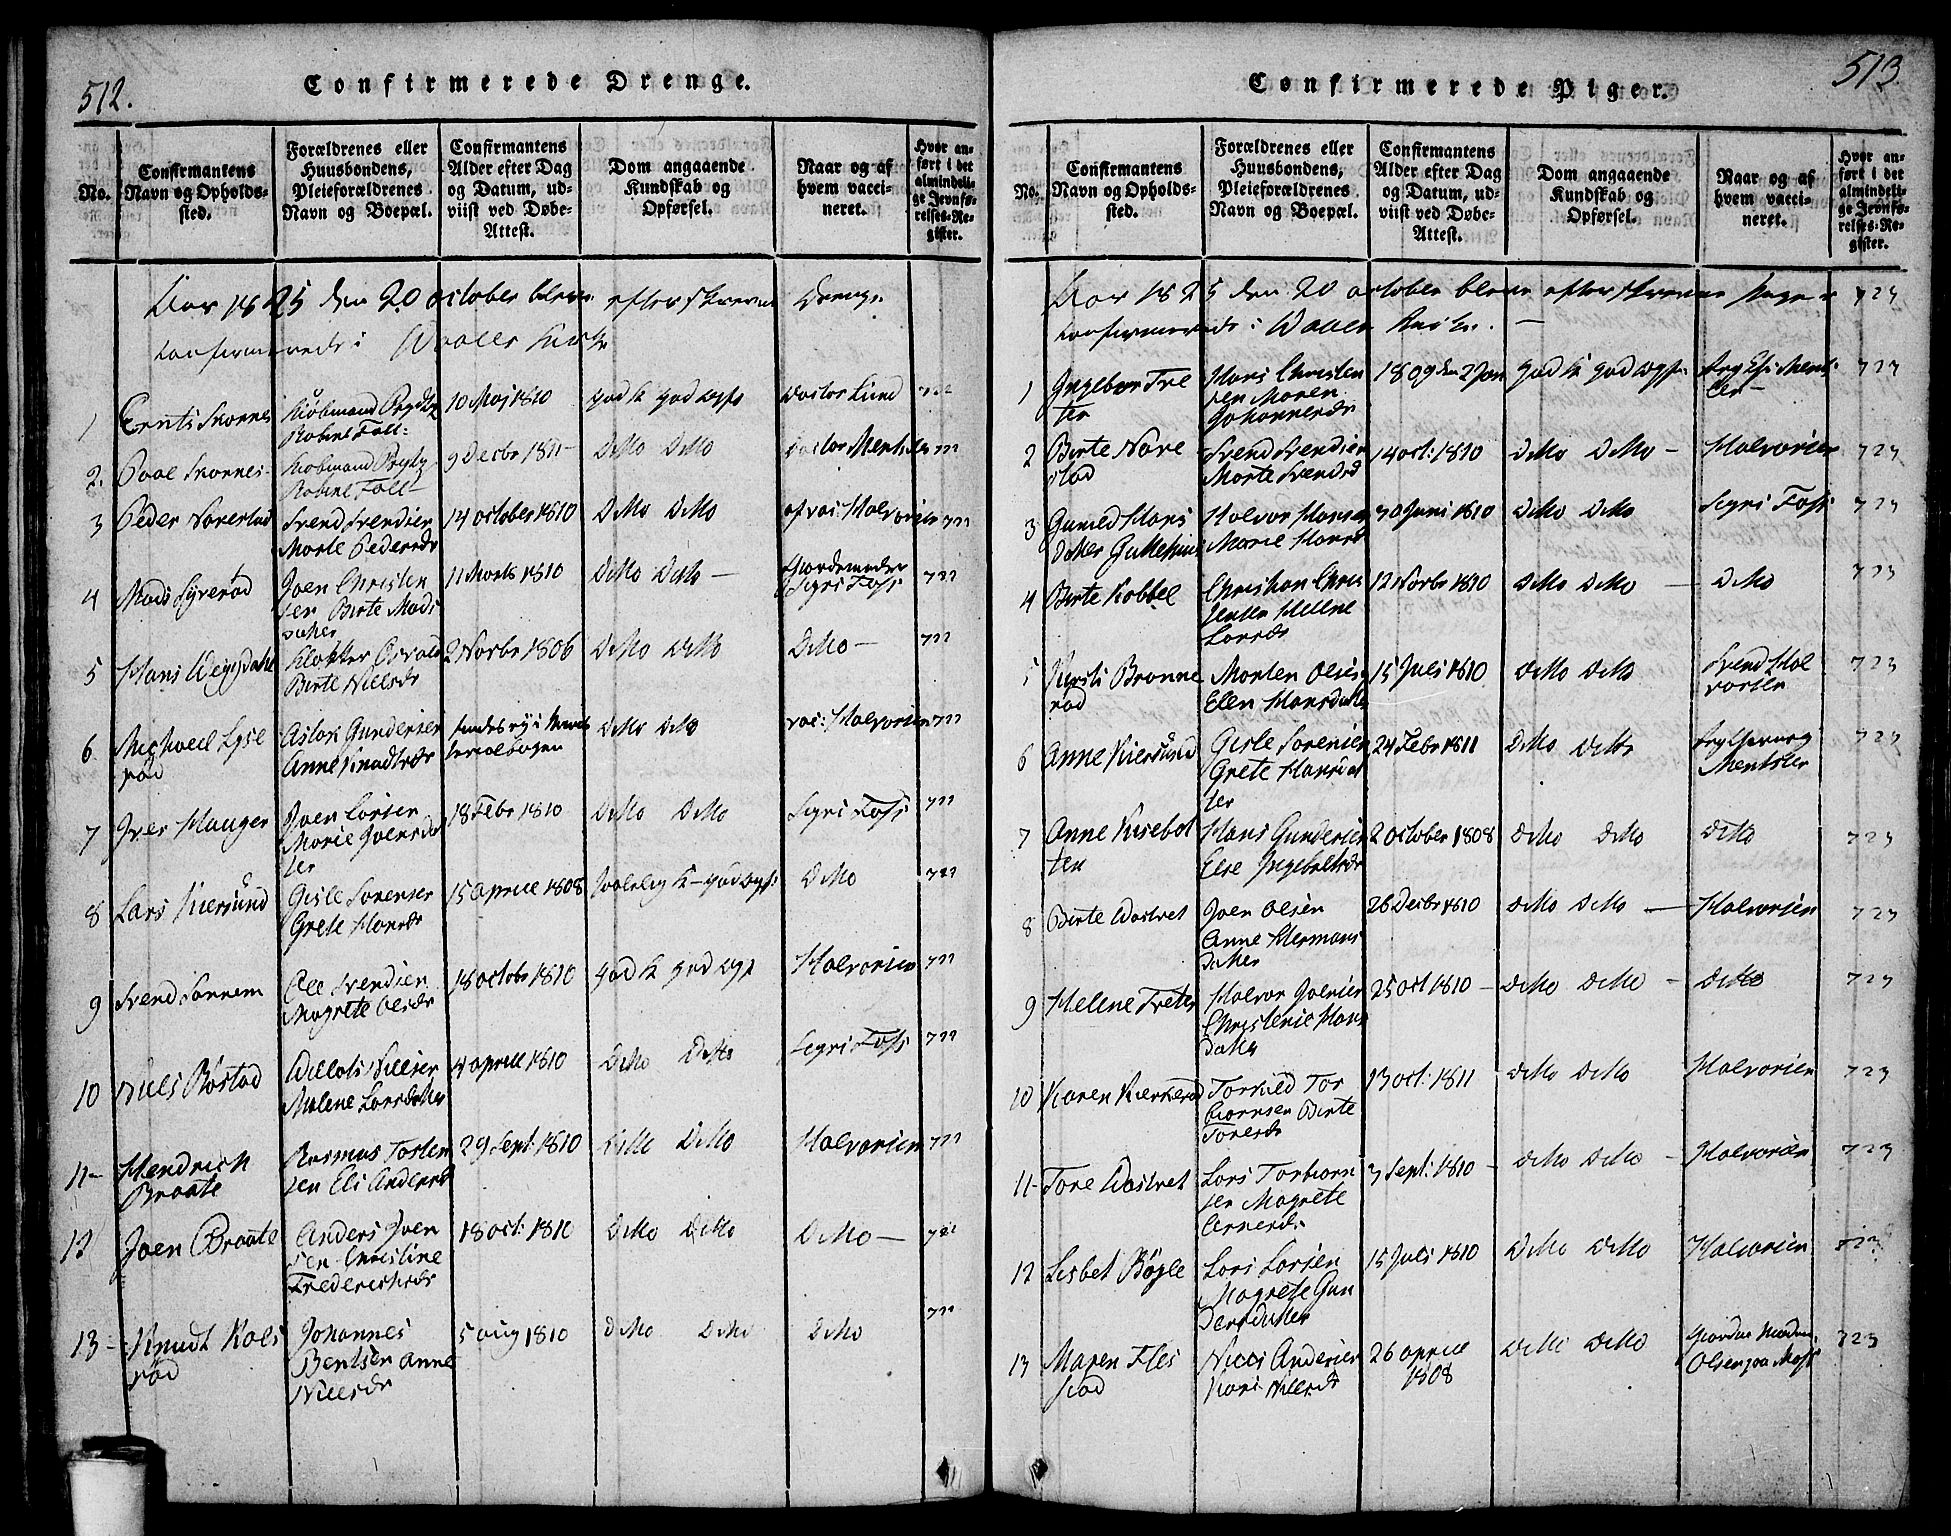 512.
Confirmerede Drenge.
No.
Confirmantens
Navn og Opholds-
sted.
Forældrenes eller
Huusbondens,
Pleieforældrenes
Navn og Boepæl.
Confirmantens
Alder efter Dag
og Datum, ud-
viist ved Døbe-
Attest.
Dom angaaende
Kundskab og
Opførsel.
Naar og af
hvem vacci-
neret.
Hvor an-
ført i det
almindeli-
ge Jevnfø-
relses-Re-
gister.
Aar 1825 den 20 october bleve efterskrevne Drenge
Confirmerede i Waaler Kirke
1
10 Maj 1810
god K god
722
2.
9 Decbr 1811
Ditto Ditto
722
3
Peder Norestad
Svend Svendsen
Marte Pedersdr
14 october 1810
Ditto Ditto
722
4
Mads Syverød
Joen Christen
sen Birte Mads
datter
11 Marts 1810
Ditto Ditto —
Jordemoder
Segri Foss
722
5
Hans
Birte Nielsdr
2 Novbr 1806
Ditto Ditto
Ditto —
722
6
rød
Aslak Gundersen
Anne
findes ej i Minis
terialbogen
Ditto Ditto
vac: Halvorsen
722
7
Iver Hauger
Joen Larsen
Marie Joensdat
ter
18 Febr 1810
Ditto Ditto
Segri Foss
722
8
Lars Kiersund
Gisle Sørensen
Grete Hansdr
15 aprill 1808
Ditto
722
9
Svend
Ole Svendsen
Magrete Olsdr
18 octobr 1810
god K god
Halvorsen
722
10
Niels Røstad
Malene Larsdatter
4 aprill 1810
Ditto Ditto
Segri Foss
722
11-
Hendrich
Braate
Rasmus Torsten
sen Eli Andersd
29 Sept: 1810
Ditto Ditto
Halvorsen
722
12
Joen Braate
Anders Joen
sen Christine
Frederichsdr
18 oct: 1810
Ditto Ditto
Ditto —
722
13-
Knudt Kols
rød
Johannes
Bentsen Anne
Nilsdr
5 aug 1810
Ditto Ditto
Ditto
722
513
Confirmerede Piger.
No.
Confirmantens
Navn og Opholds-
sted.
Forældrenes eller
Huusbondens,
Pleieforældrenes
Navn og Boepæl.
Confirmantens
Alder efter Dag
og Datum, ud-
viist ved Døbe-
Attest.
Dom angaaende
Kundskab og
Opførsel.
Naar og af
hvem vacci-
neret.
Hvor an-
ført i det
almindeli-
ge Jevnfø-
relses-Re-
gister.
Aar 1825 den 20 october bleve efterskrevne Piger 723
Confirmerede i Waaler Kirke. —
1
Ingebor Tre
ter
Hans Christen
sen Maren
Johannesdr
1809 den 2 Jan
god K god
723
2
Birte Nore
stad
Svend Svendsen
Marte Svendsd
14 oct: 1810
Ditto Ditto —
Halvorsen
723
3
Gunild Hans
datter
Halvor Hansen
Marie Hansd
30 Juni 1810
Ditto Ditto
Segri Foss
723
4
Birte Kobbel
Christian Chris
tensen Helene
Larsdr
12 Novbr 1810
Ditto Ditto —
Ditto
723
5
Kersti Brønne
rød
Morten Olsen
Elen Hansdatter
15 Juli 1810
Ditto Ditto
Svend Hal
vorsen
723
6
Anne Kiersund
Gisle Sørensen
Grete Hansdat
ter
24 Febr 1811
Ditto Ditto
723
7
Anne Kisebot
ten
Hans Gundersen
Else Ingeboltsdr
2 october 1808
Ditto Ditto
Ditto
723
8
Birte Wastvet
Joen Olsen
Anne Hermans
datter
26 Decbr 1810
Ditto Ditto —
Halvorsen
723
9
Helene Treter
Halvor Joensen
Christense Hans
datter
25 oct 1810 —
Ditto Ditto —
Ditto
723
10
Karen Kierkerød
Torkild Tor
biørnsen Birte
Toresdr
13 oct: 1811
Ditto Ditto
Halvorsen
723
11-
Tore Wastvet
Lars Torbiørn
sen Magrete
Arnesdr
3 Sept: 1810 —
Ditto Ditto —
Halvorsen
723
12
Lisbet Bøgle
Lars Larsen
Magrete Gun
dersdatter
15 Juli 1810
Ditto Ditto
Halvorsen
723
13
Maren Fles
stad
Niels Andersen
Kari Nilsdr
26 aprill
1808
Ditto Ditto
Olsen paa Moss
723